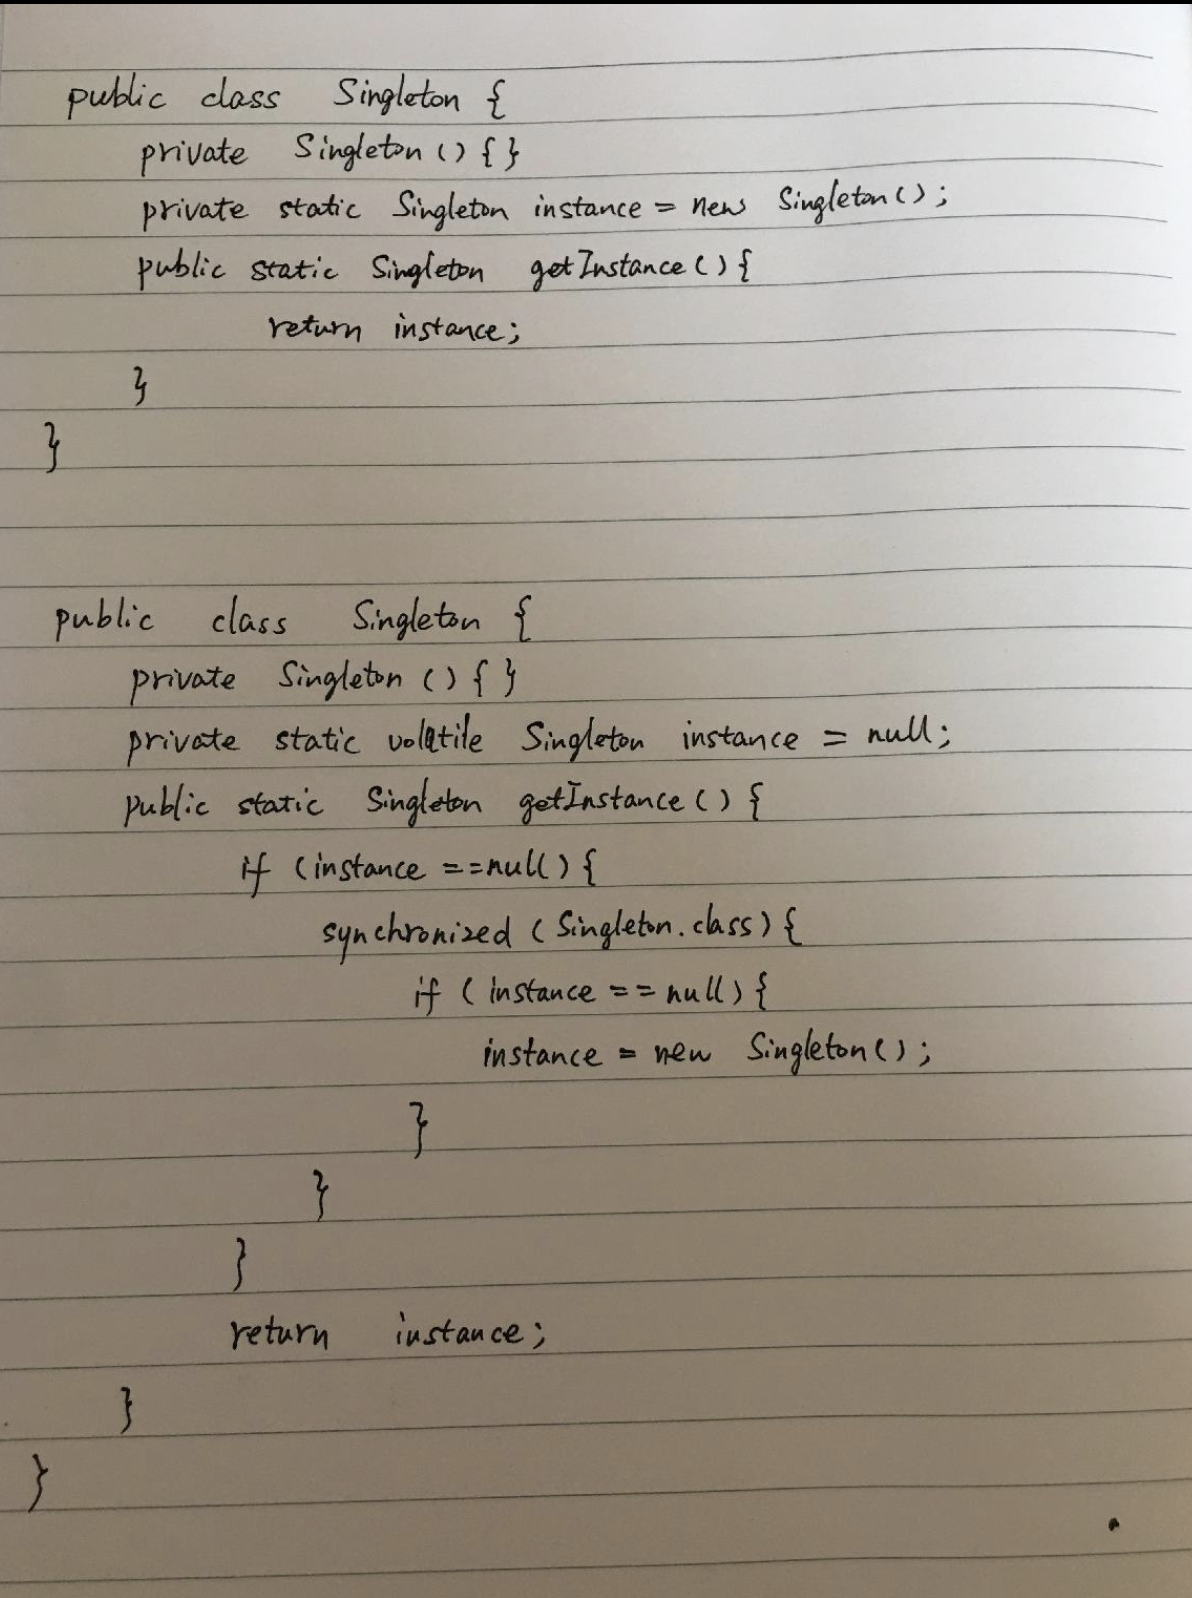 public class Singleton {
private Singleton () { }
private static Singleton instance = new Singleton();
public static Singleton getInstance() {
return instance;
}
}
public class Singleton {
private Singleton () { }
private static volatile Singleton instance = null;
public static Singleton getInstance () {
if (instance == null) {
synchronized (Singleton.class) {
if (instance == null) {
instance = new Singleton();
}
}
}
return instance;
}
}